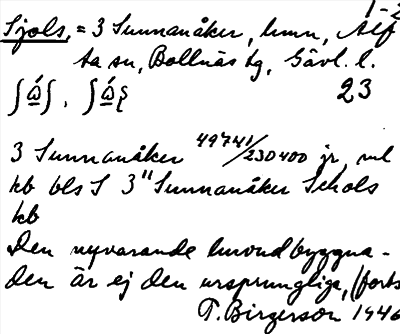 1-2
Sjols, = 3 Sunnanåker, hmn, Alf
ta sn, Bollnäs tg, Gävl. l.
23
3 Sunnanåker 49741/230400 jr,
kb bls S 3" Sunnanåker Schols
kb
Den nyvarande huvudbyggna-
den är ej den ursprungliga, (forts
T. Birgerson 1946